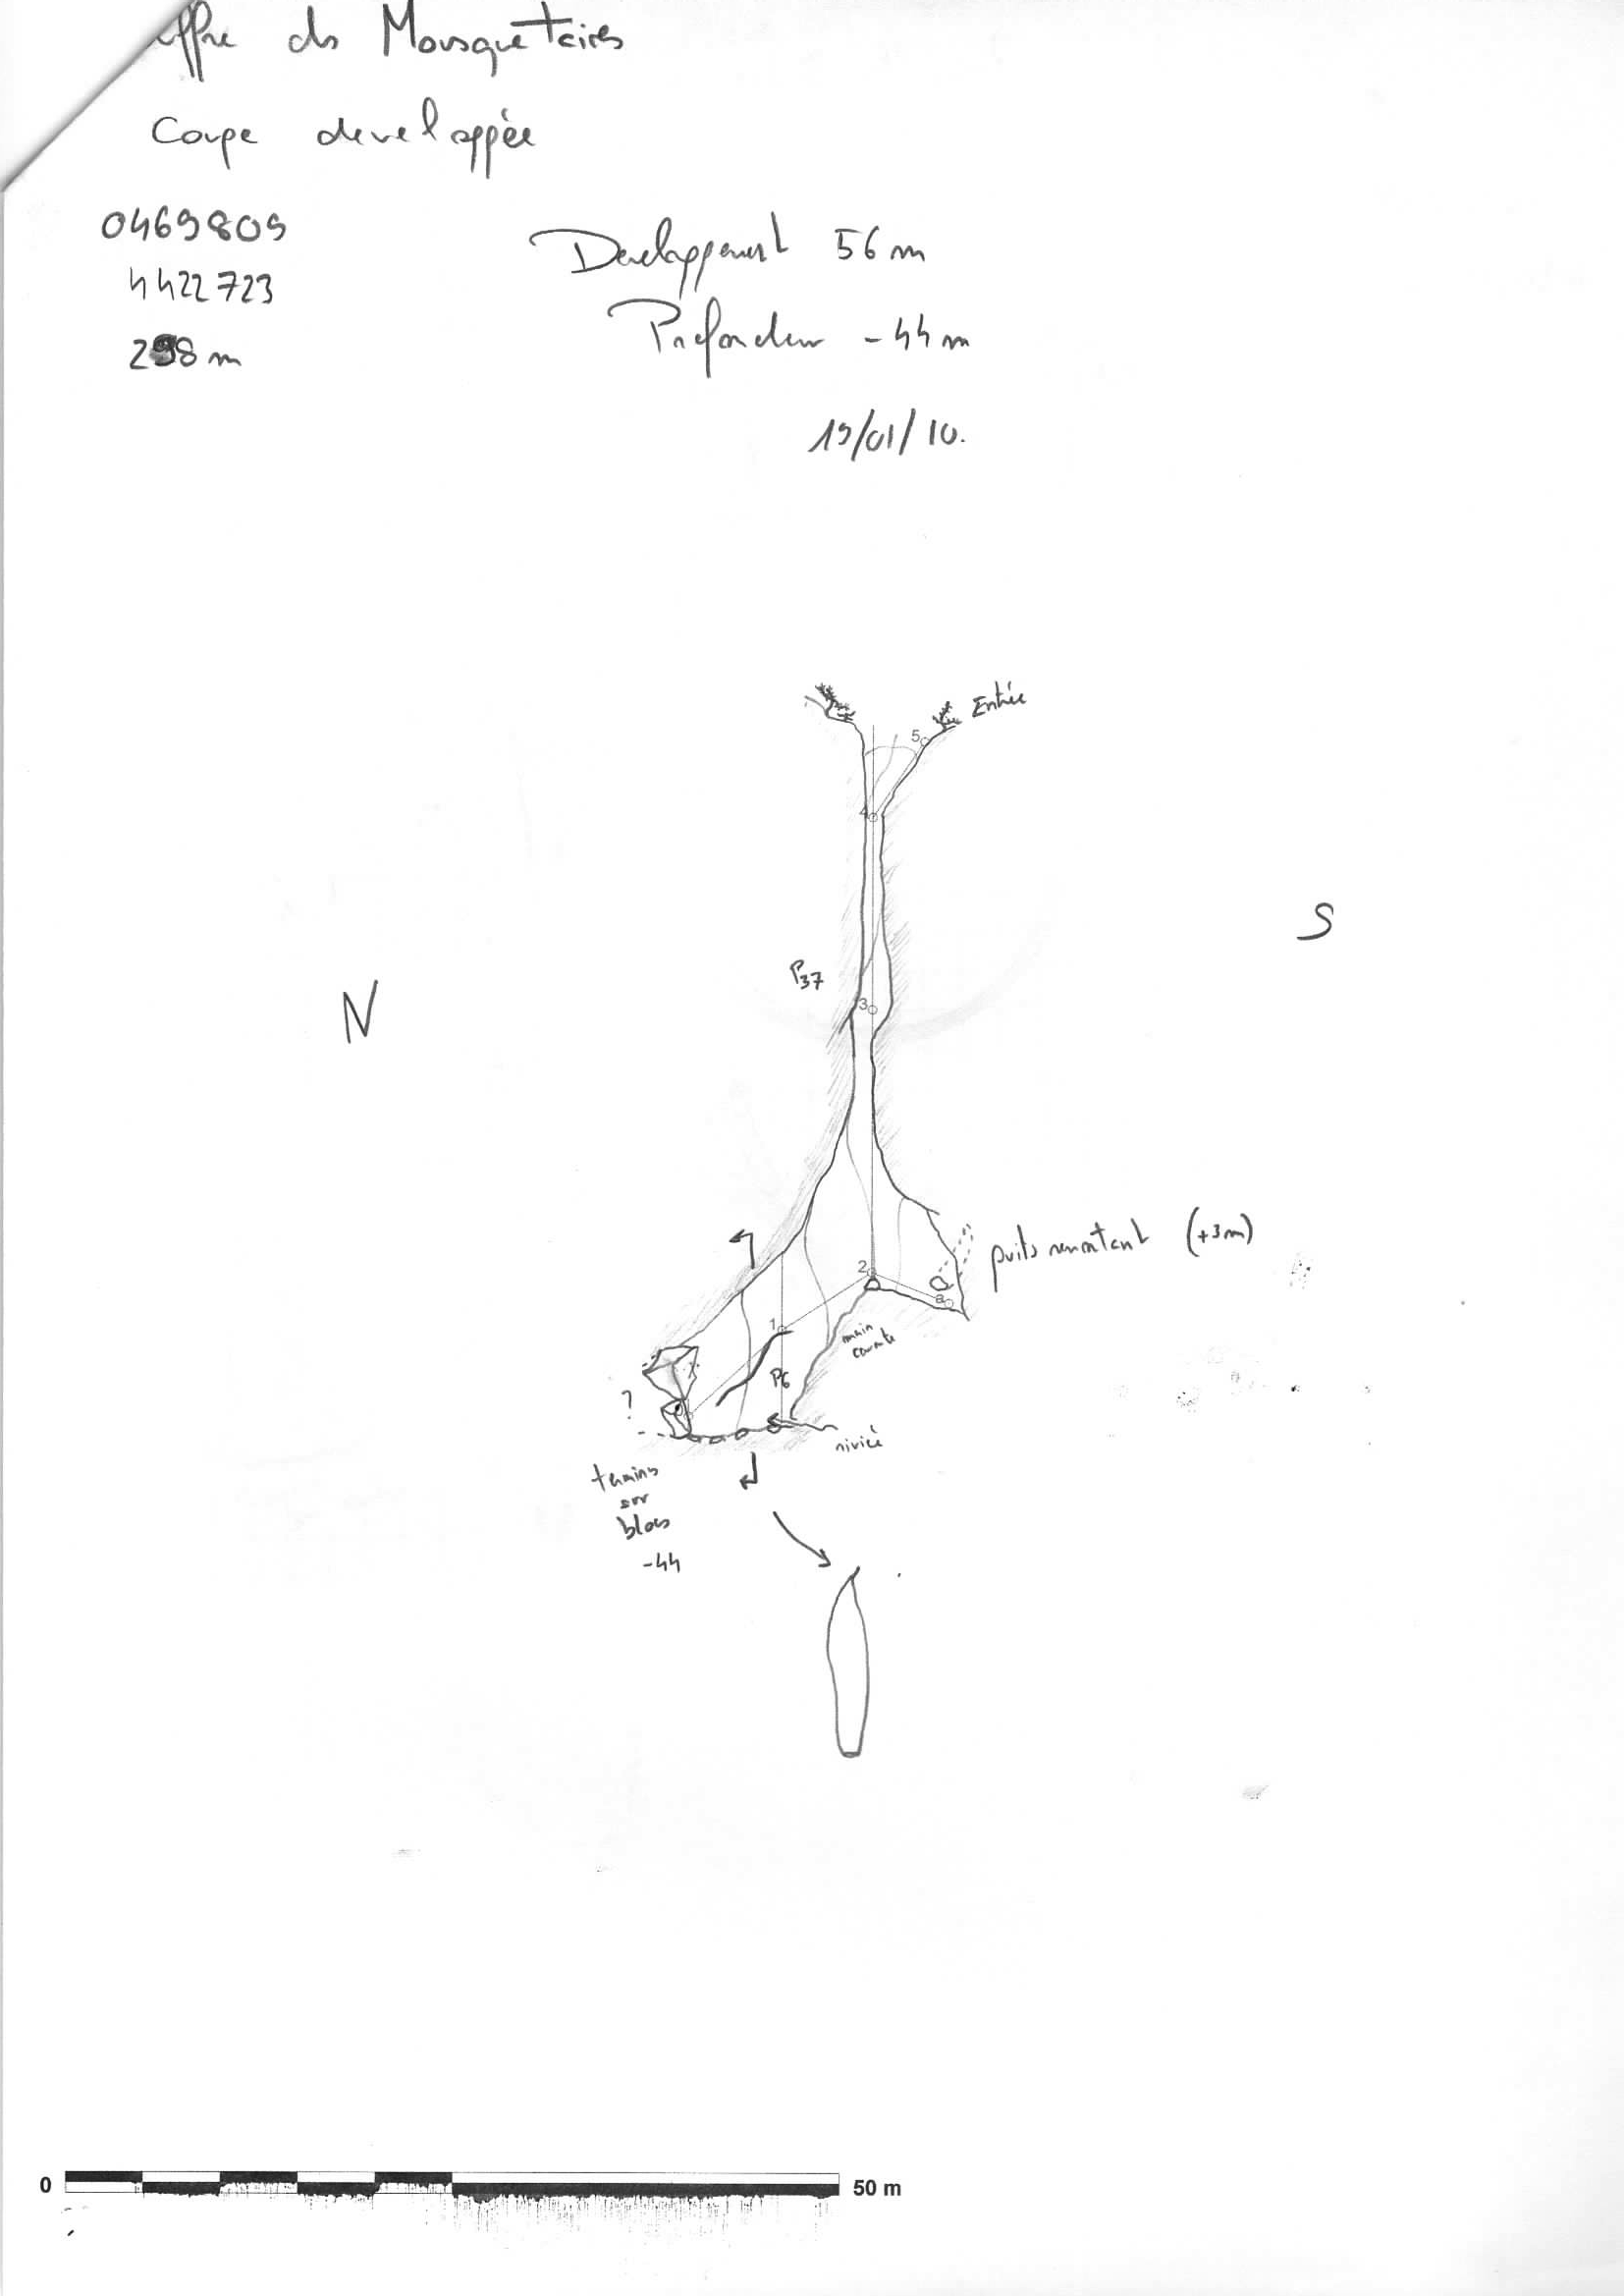 ffre des Mousquetaires
Coupe developpée
0469809
4422723
298 m
Developpement 56 m
Profondeur - 44 m
19/01/10.
Entrée
5
4
S
P37
N
3
puits remontant (+3m)
2
a
1
main
courante
P6
?
rivière
terminus
sur
blocs
-44
0
50 m